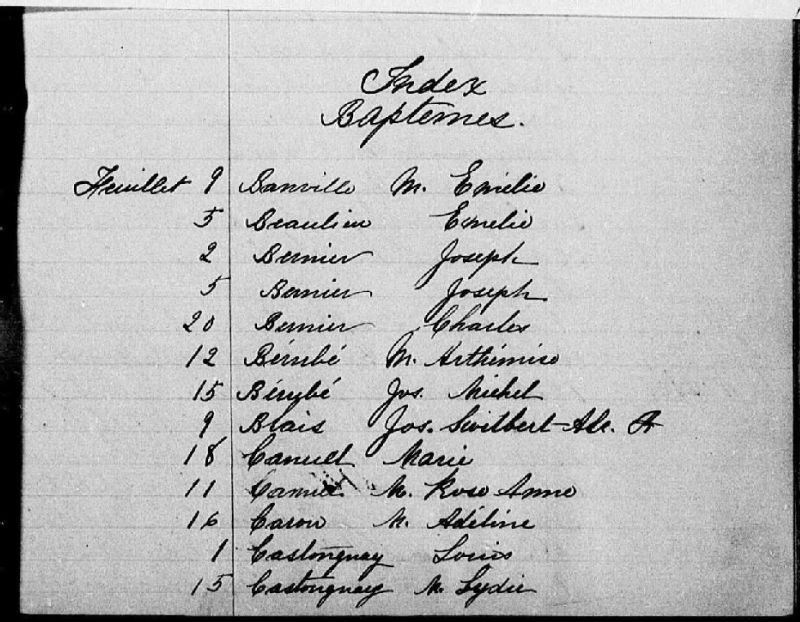 Index
Baptemes.
Feuillet 9 Banville M. Emélie
5 Beaulieu Emelie
2 Bernier Joseph
5 Bernier Joseph
20 Bernier Charles
12 Bérubé M. Arthémise
15 Bérubé Jos. Michel
9 Blais Jos.
18 Canuel Marie
11 M. Rose Anna
16 Caron M. Adéline
1 Castonguay Louis
15 Castonguay M. Lydie